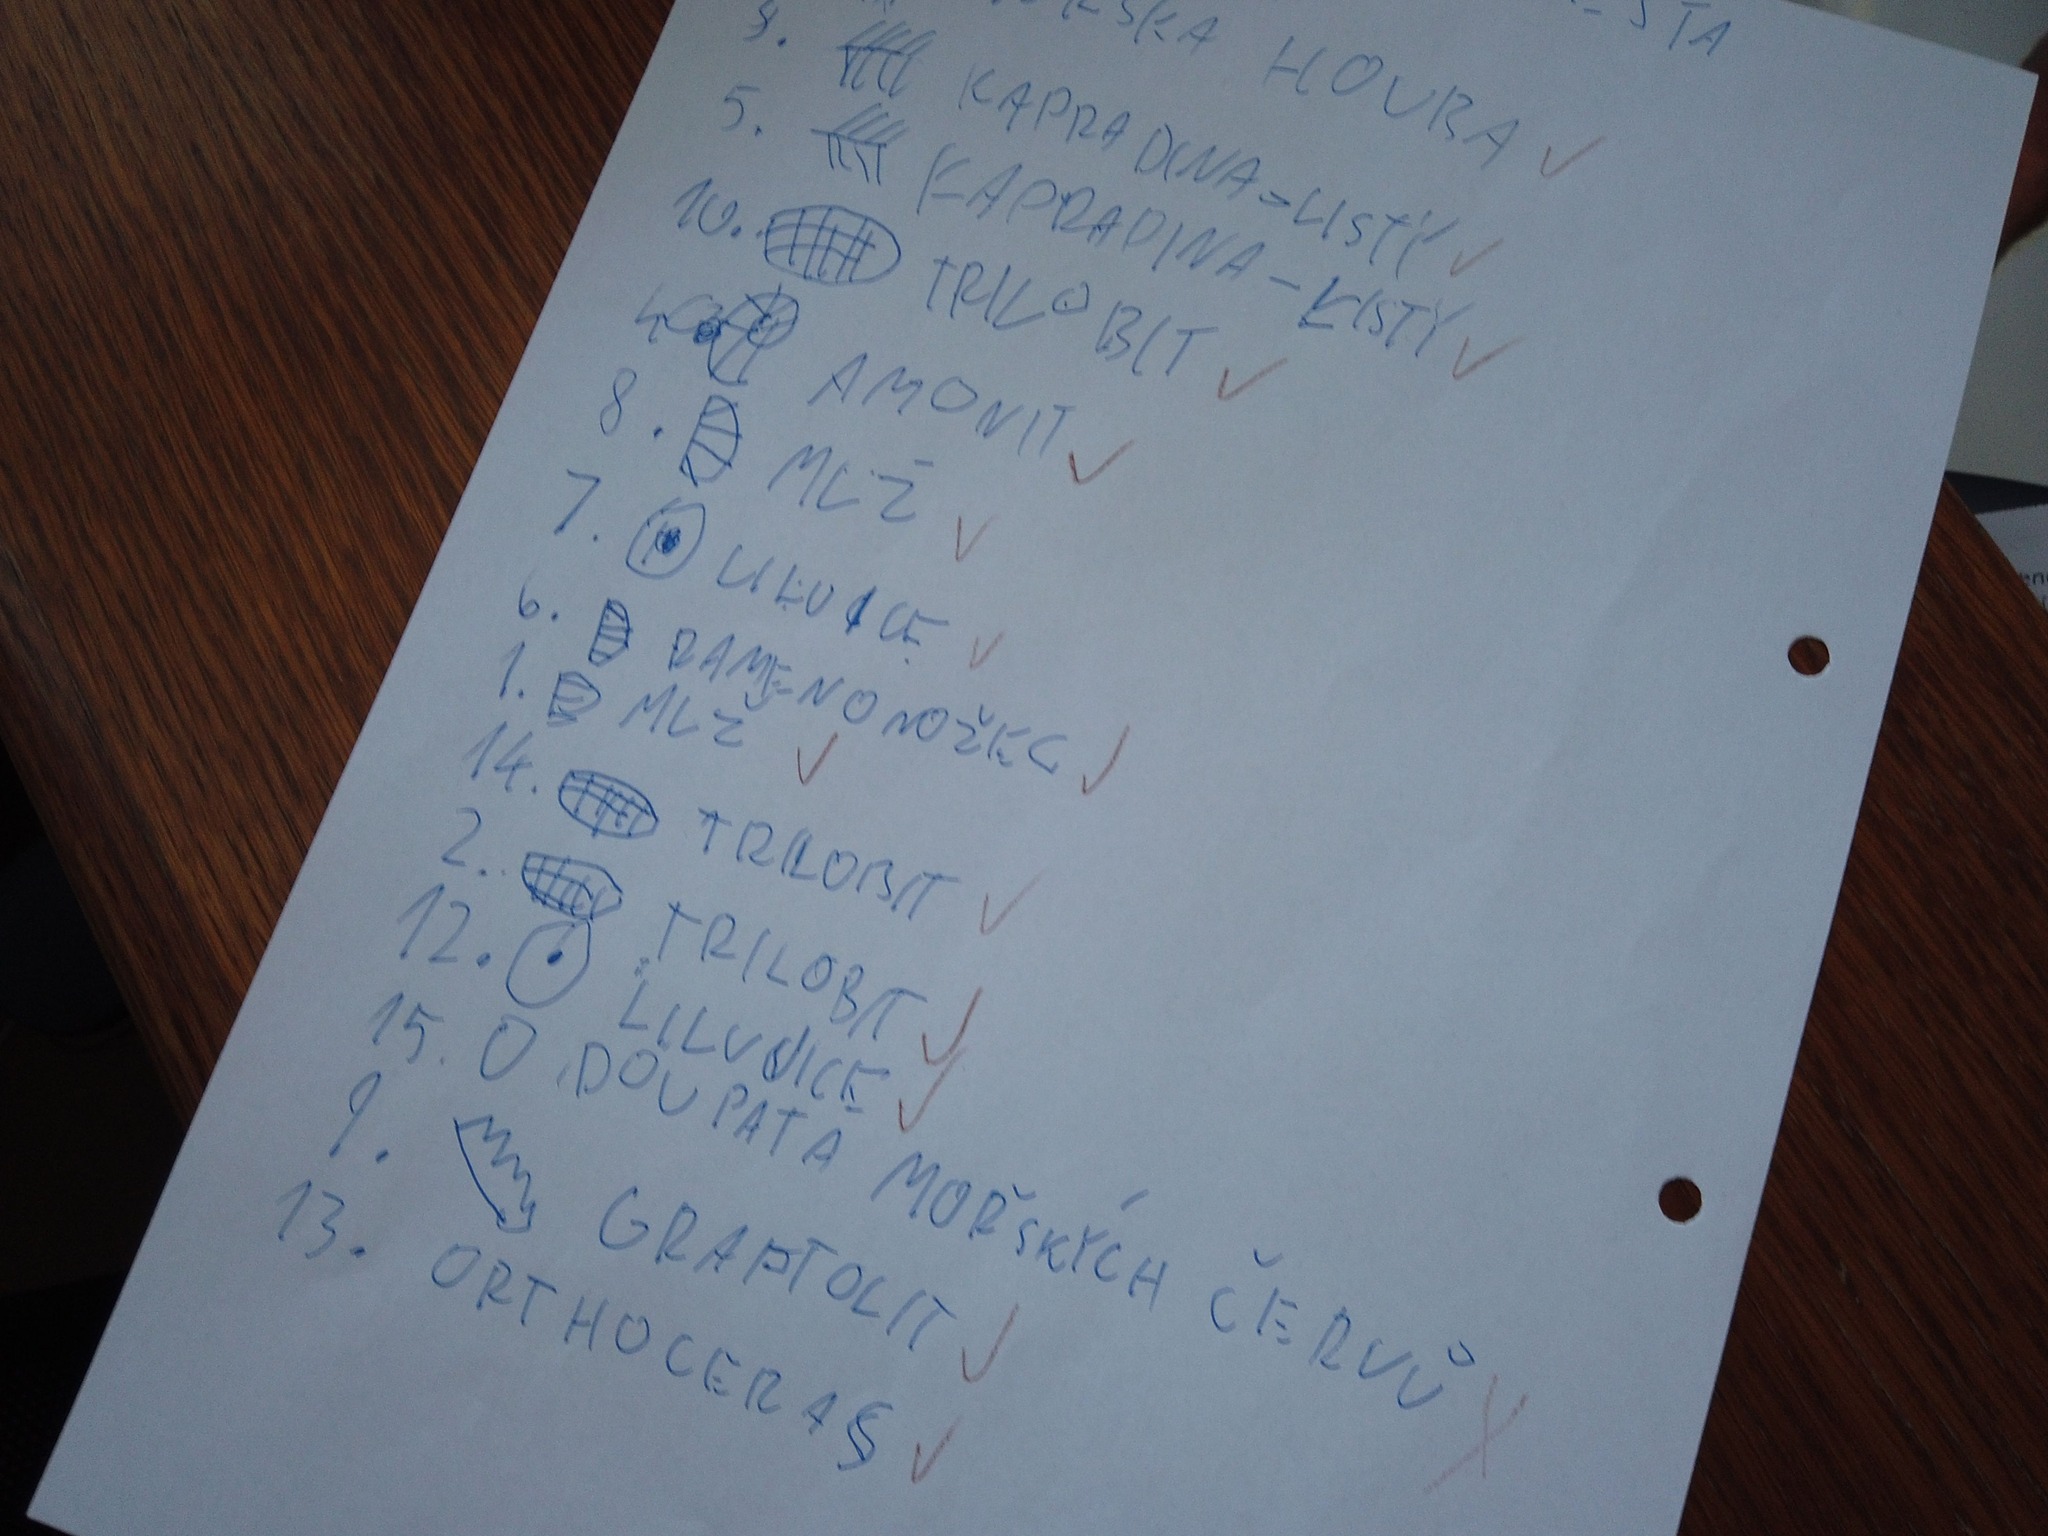 HOUBA
3. KAPRADINA-LISTY
5. KAPRADINA-LISTY
10. TRILOBIT
4. AMONIT
8. MLŽ
7. LILIJICE
6. RAMENONOŽEC
1. MLŽ
14. TRILOBIT
2. TRILOBIT
12. LILIJICE
15. DOUPATA MOŘSKÝCH ČERVŮ
9. GRAPTOLIT
13. ORTHOCERAS